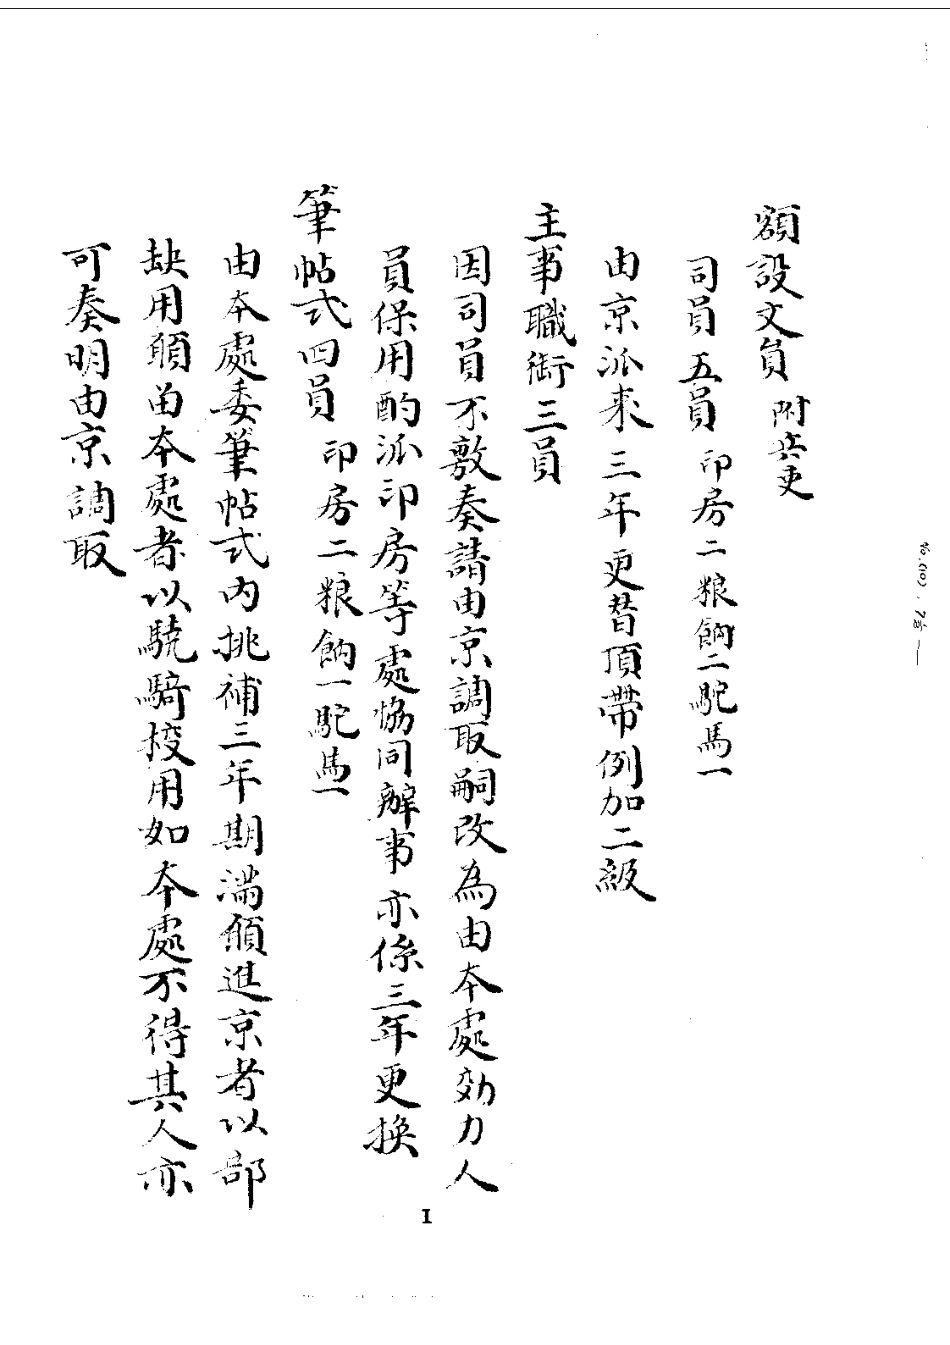 額設文員 附吏
司員五員 印房二粮餉二駝馬一
由京派来三年更替頂帶例加二級
主事職銜三員
因司員不敷奏請由京調取嗣改為由本處効力人
員保用酌派印房等處協同辦事亦係三年更換
筆帖式四員 印房二粮餉一駝馬一
由本處委筆帖式內挑補三年期滿願進京者以部
缺用願留本處者以驍騎校用如本處不得其人亦
可奏明由京調取
I